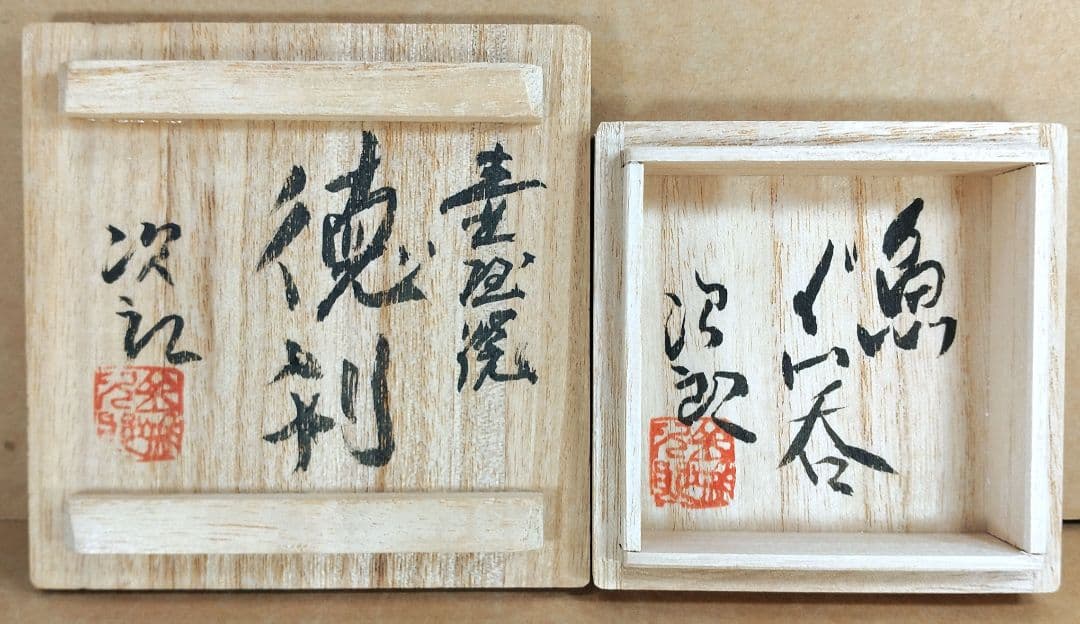 壷屋焼
徳利
次郎
魚
ぐい呑
次郎